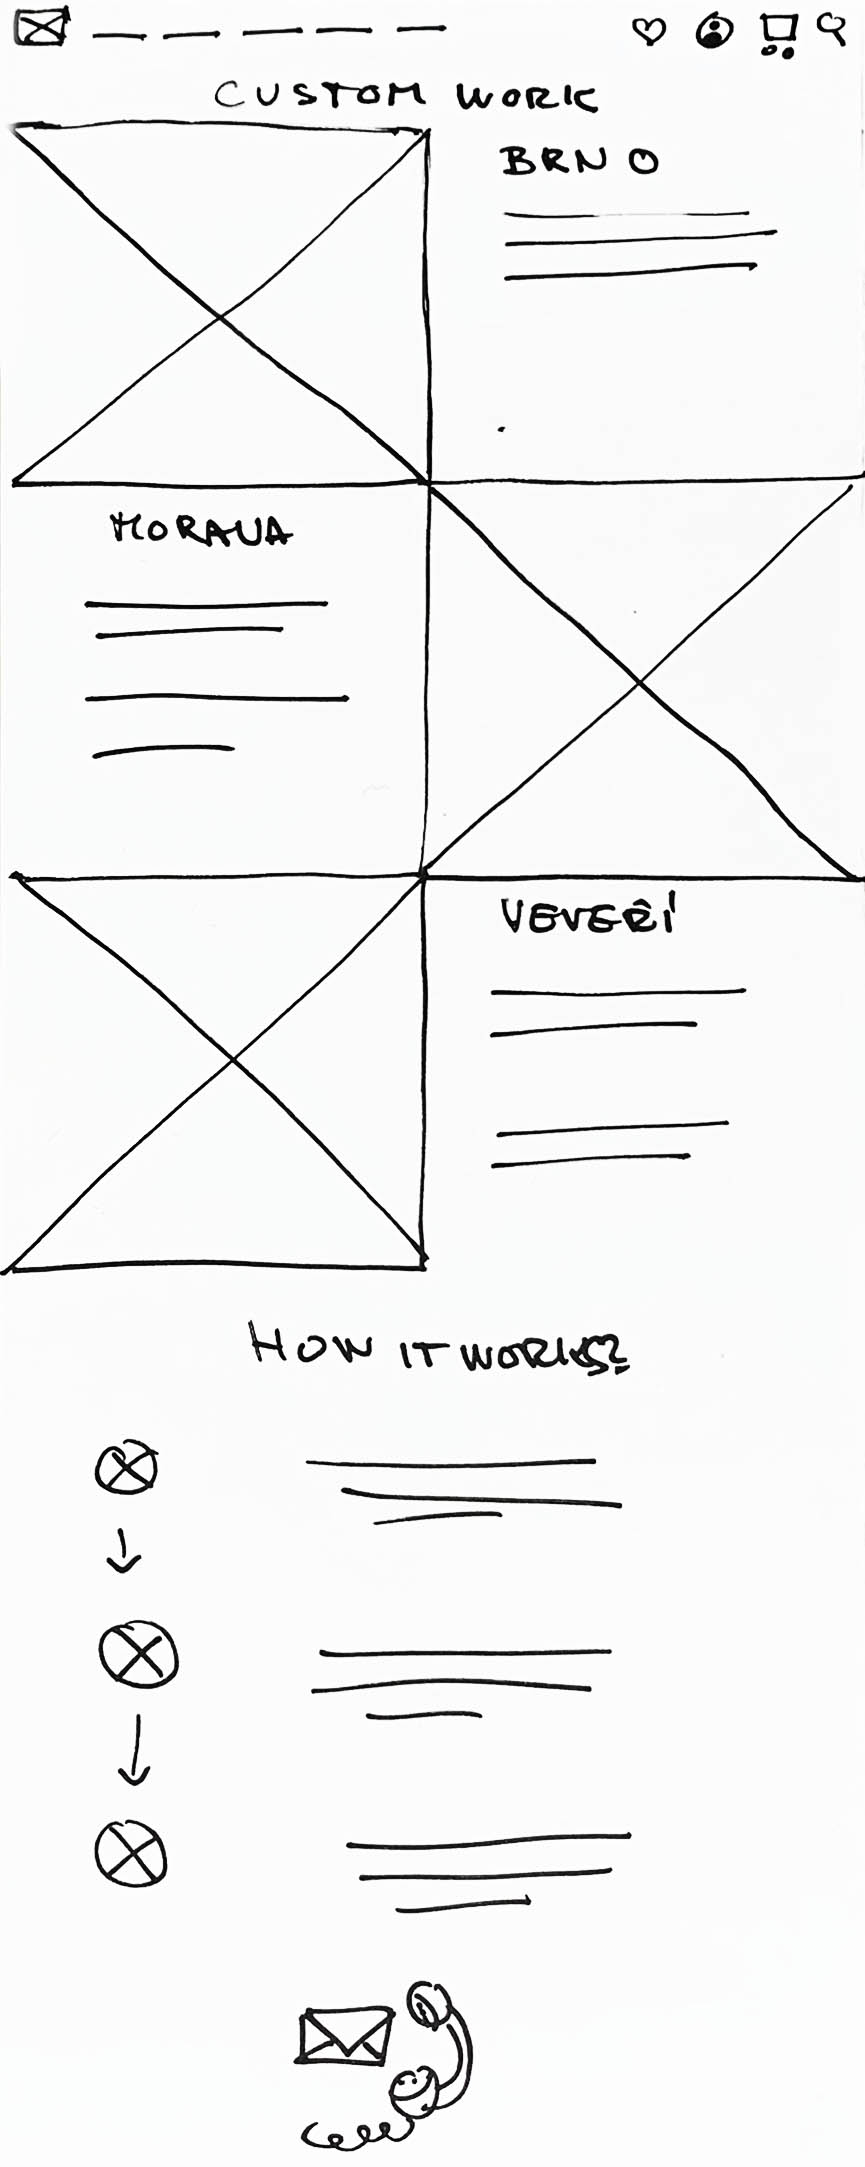 CUSTOM WORK
BRNO
MORAVA
VEVEŘÍ
HOW IT WORKS?